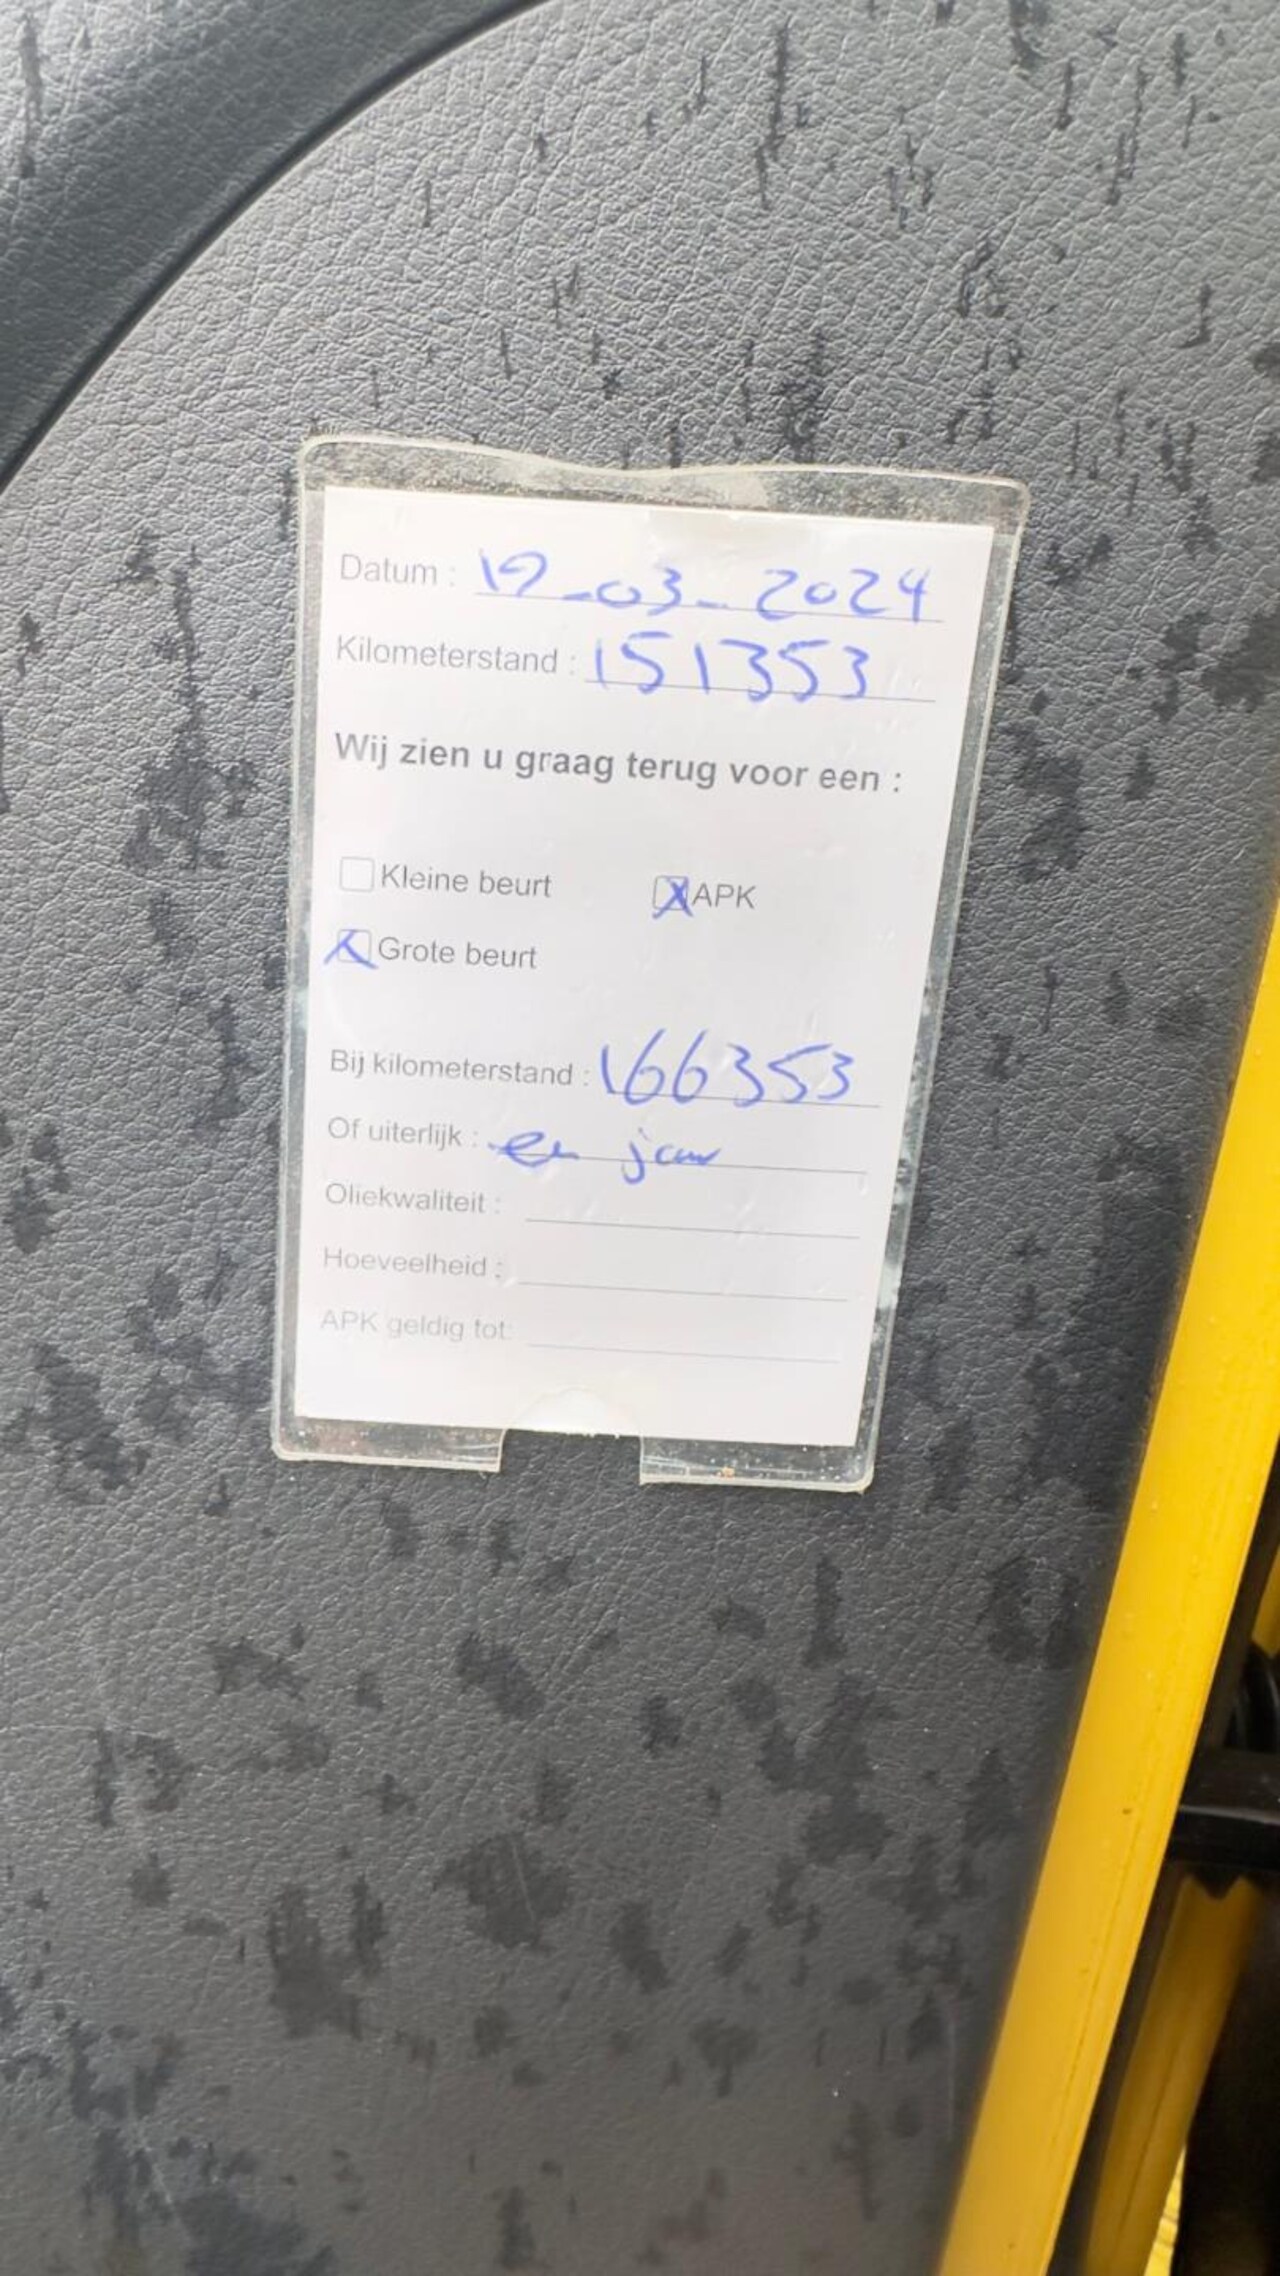 Datum : 19-03-2024
Kilometerstand : 151353
Wij zien u graag terug voor een :
Kleine beurt
X APK
X Grote beurt
Bij kilometerstand : 166353
Of uiterlijk : een jaar
Oliekwaliteit :
Hoeveelheid :
APK geldig tot: